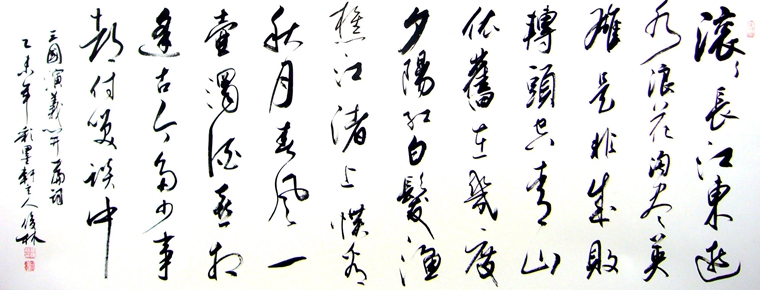 滚々長江東逝
水浪花淘尽英
雄是非成敗
轉頭空青山
依舊在幾度
夕陽红白髮漁
樵江渚上慣看
秋月春風一
壺濁酒喜相
逢古今多少事
都付笑談中
三國演義开篇詞
乙未年彩墨軒主人俊林